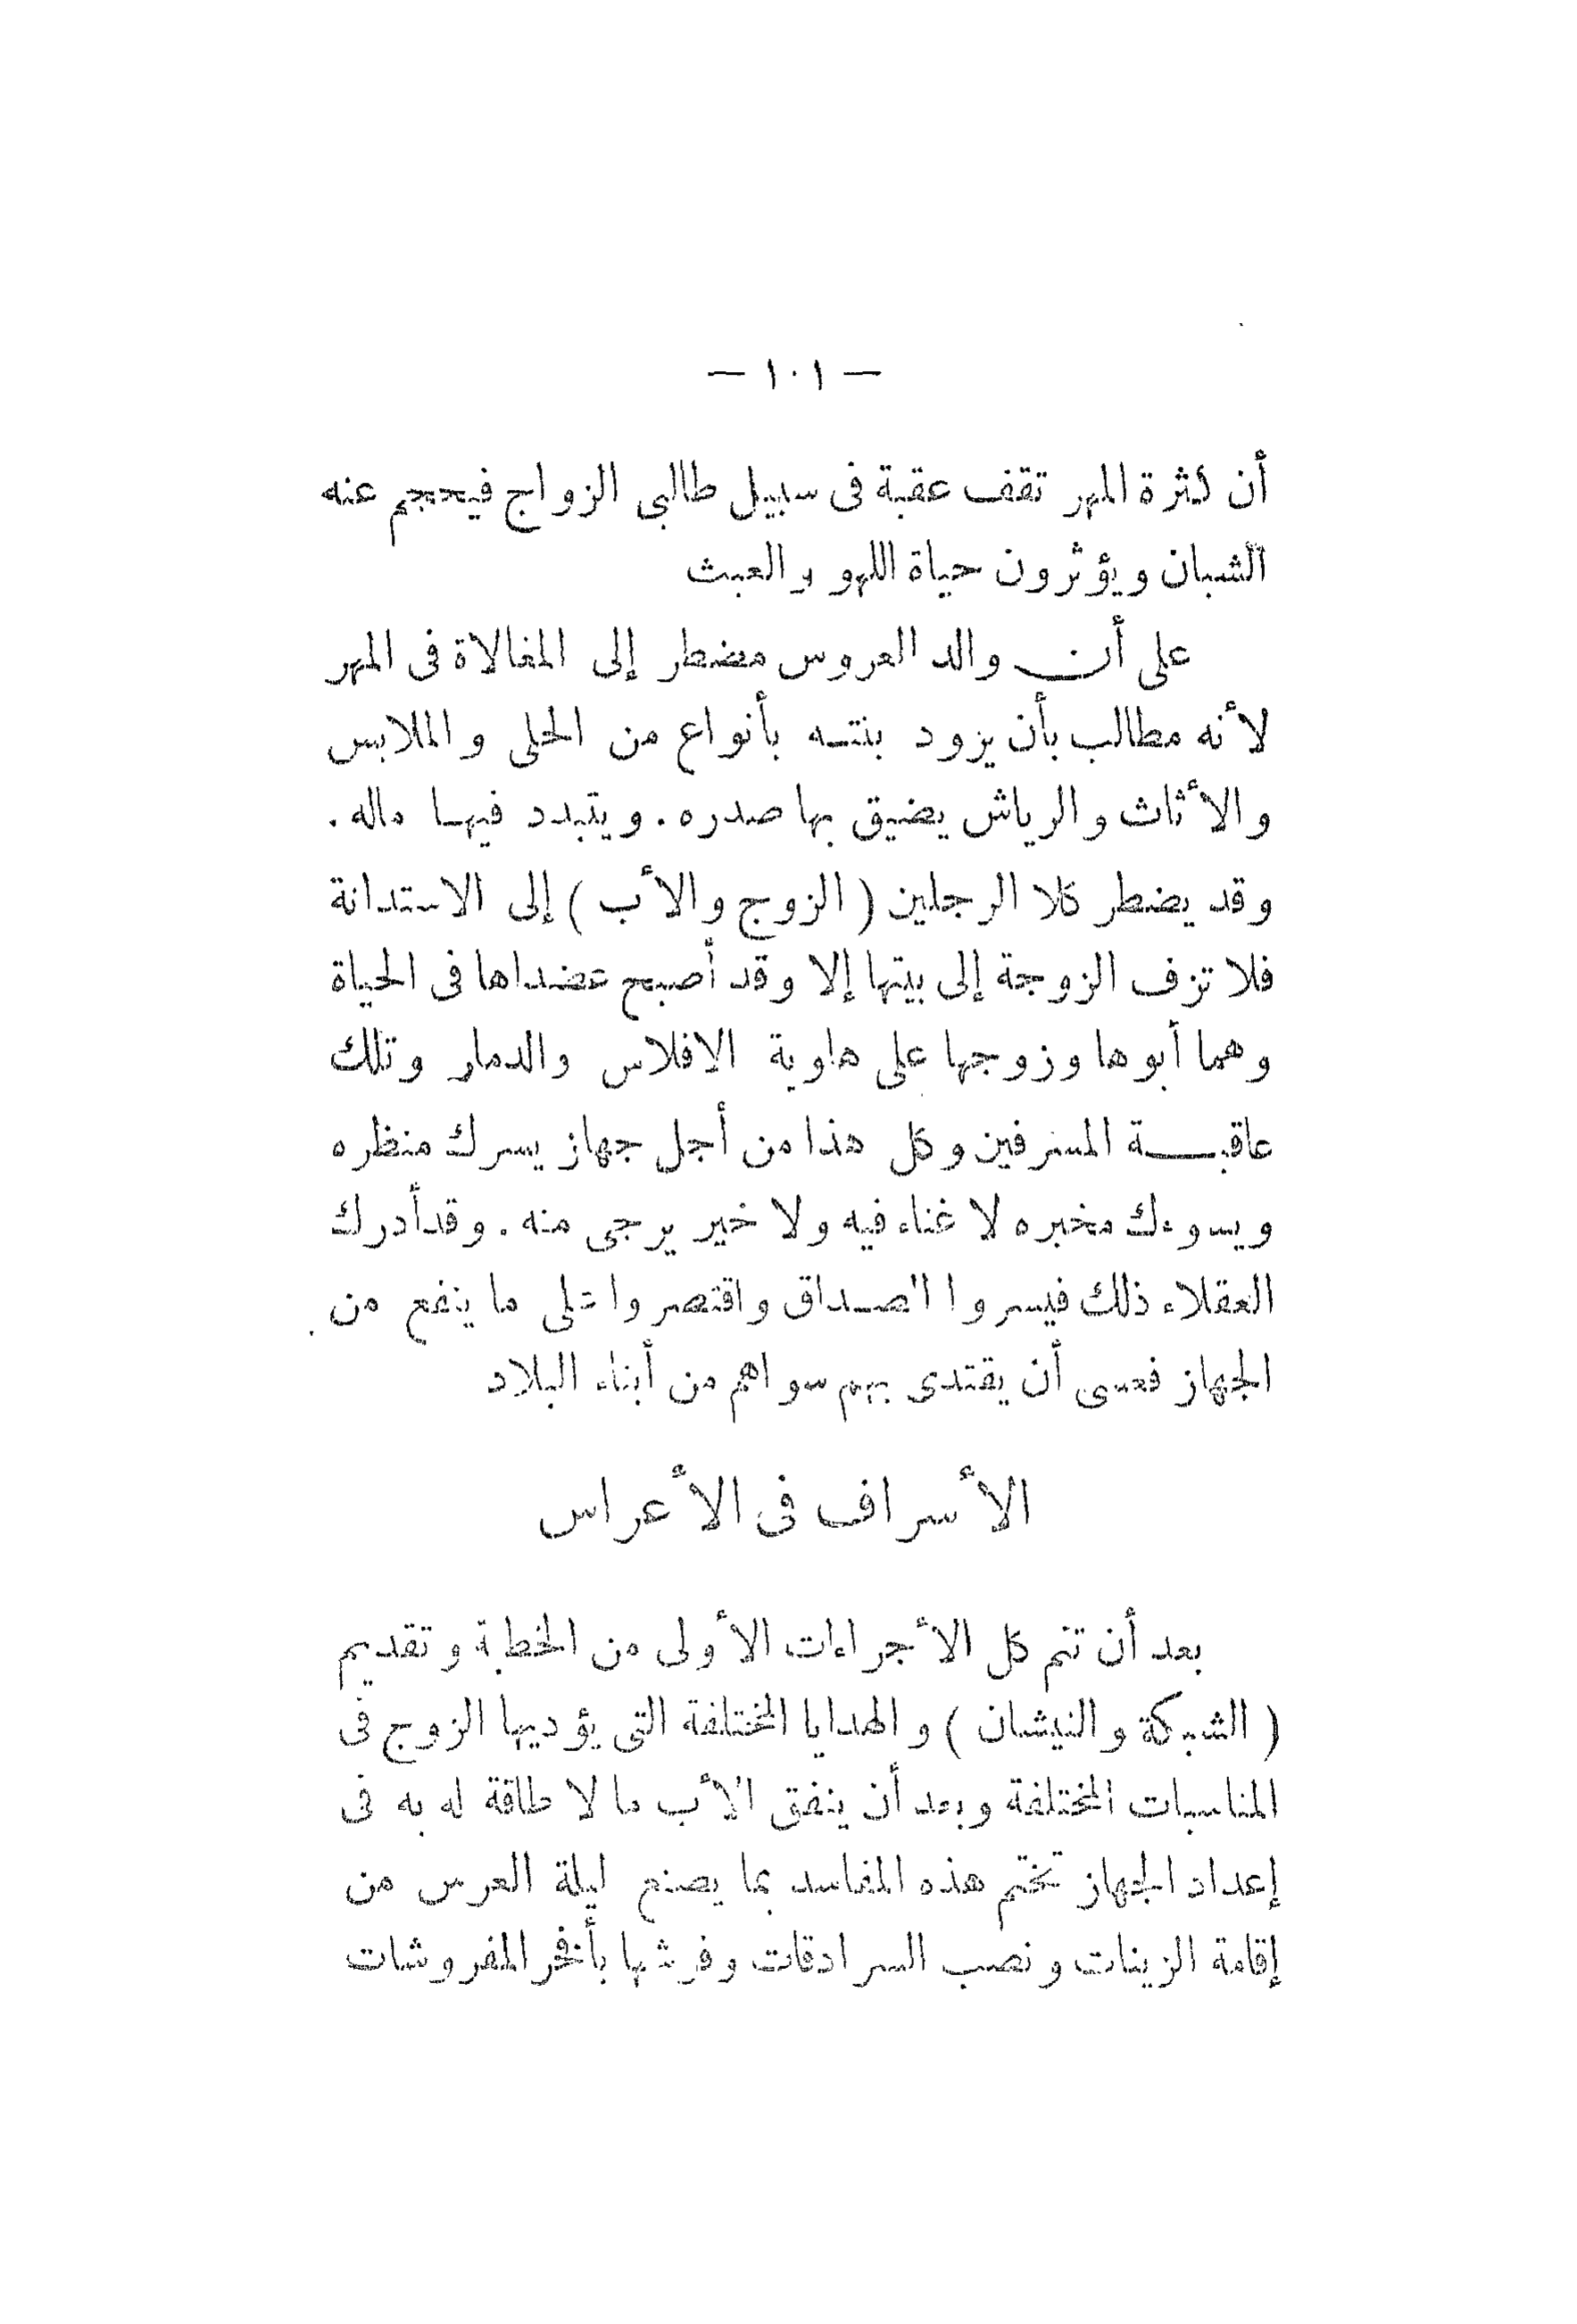 — ١٠١ —
أن كثرة المهر تقف عقبة فى سبيل طالبى الزواج فيحجم عنه
الشبان ويؤثرون حياة اللهو والعبث
على أن والد العروس مضطر إلى المغالاة فى المهر
لأنه مطالب بأن يزود بنته بأنواع من الحلى والملابس
والأثاث والرياش يضيق بها صدره. ويتبدد فيها ماله.
وقد يضطر كلا الرجلين (الزوج والأب) إلى الاستدانة
فلا تزف الزوجة إلى بيتها إلا وقد أصبح عضداها فى الحياة
وهما أبوها وزوجها على هاوية الافلاس والدمار وتلك
عاقبة المسرفين وكل هذا من أجل جهاز يسرك منظره
ويسوءك مخبره لا غناء فيه ولا خير يرجى منه. وقد أدرك
العقلاء ذلك فيسروا الصداق واقتصروا على ما ينفع من
الجهاز فعسى أن يقتدى بهم سواهم من أبناء البلاد
الأسراف فى الأعراس
بعد أن تتم كل الأجراءات الأولى من الخطبة وتقديم
(الشبكة والنيشان) والهدايا المختلفة التى يؤديها الزوج فى
المناسبات المختلفة وبعد أن ينفق الأب ما لا طاقة له به فى
إعداد الجهاز تختم هذه المفاسد بما يصنع ليلة العرس من
إقامة الزينات ونصب السرادقات وفرشها بأفخر المفروشات